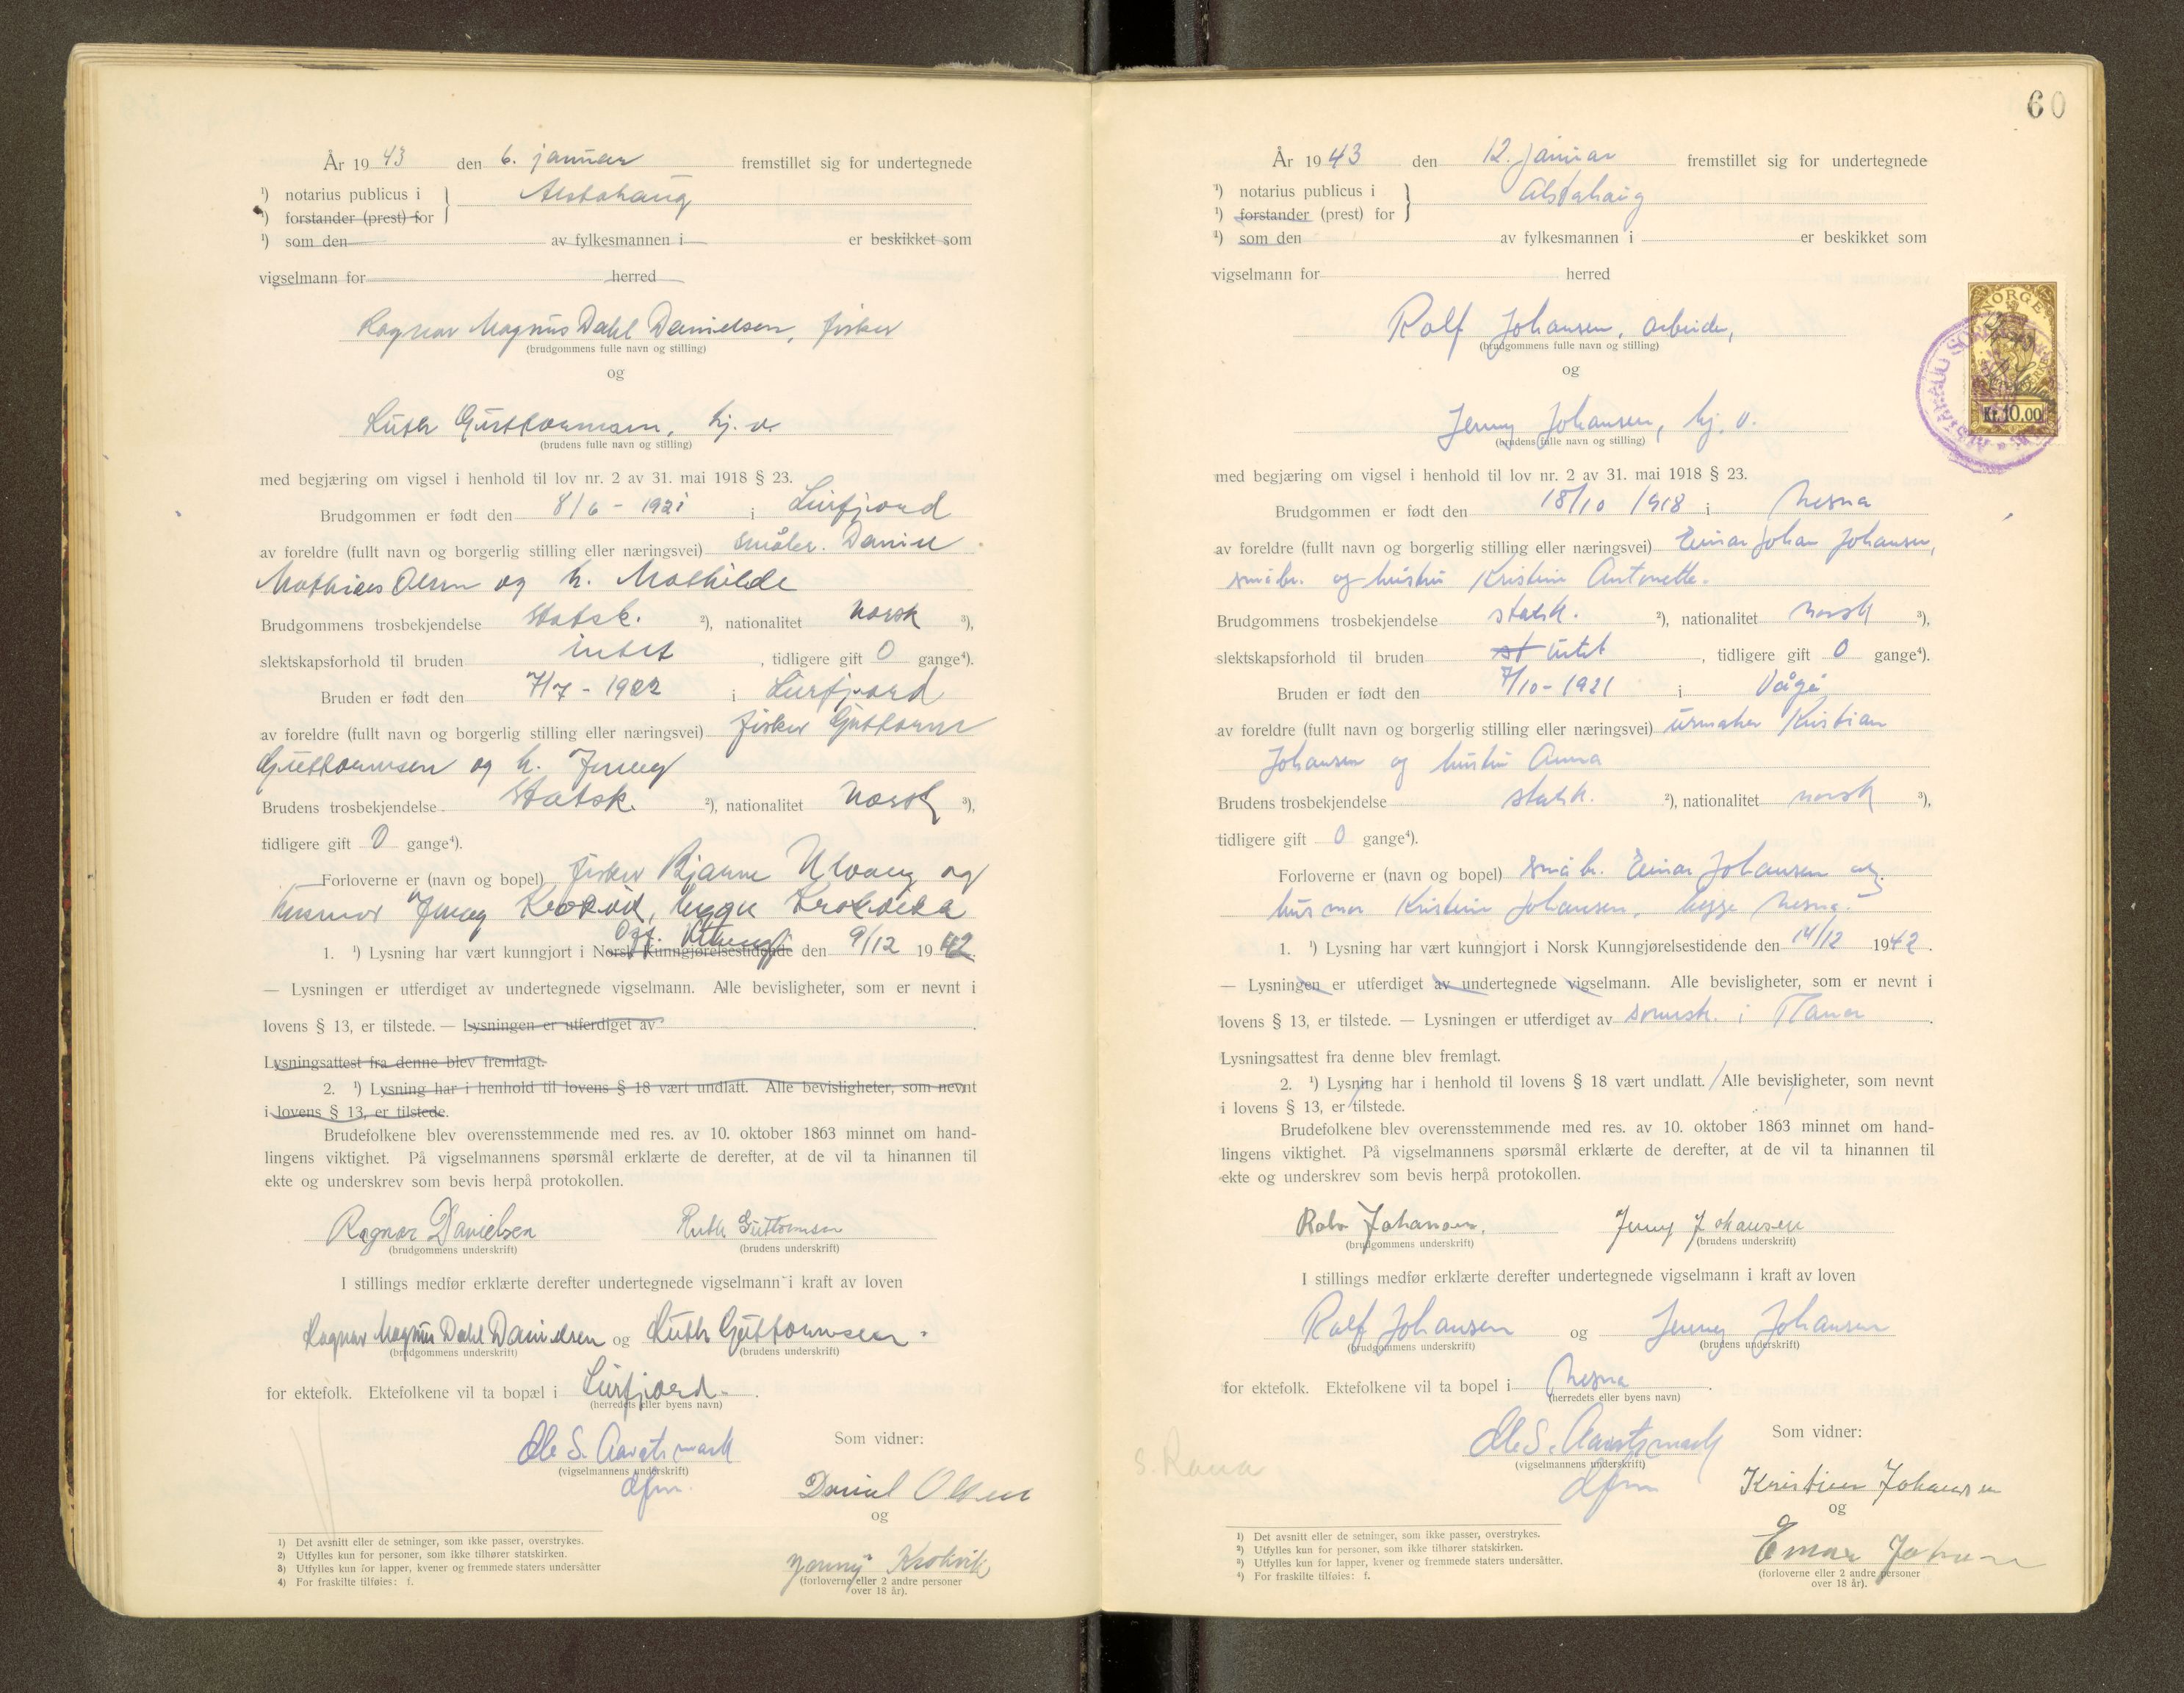 År 1943 den 6. januar fremstillet sig for undertegnede
¹) notarius publicus i
Alstahaug
¹) forstander (prest) for
¹) som den av fylkesmannen i er beskikket som
vigselmann for herred
Ragnar Magnus Dahl Danielsen, fisker
(brudgommens fulle navn og stilling)
og
Ruth Guttormsen, hj. v.
(brudens fulle navn og stilling)
med begjæring om vigsel i henhold til lov nr. 2 av 31. mai 1918 § 23.
Brudgommen er født den 8/6 - 1921 i Lurfjord
av foreldre (fullt navn og borgerlig stilling eller næringsvei) småbr. Daniel
Mathias Olsen og h. Mathilde
Brudgommens trosbekjendelse statsk. ²), nationalitet norsk ³),
slektskapsforhold til bruden intet , tidligere gift 0 gange⁴).
Bruden er født den 7/7 - 1922 i Lurfjord
av foreldre (fullt navn og borgerlig stilling eller næringsvei) fisker Guttorm
Guttormsen og h. Jenny
Brudens trosbekjendelse statsk. ²), nationalitet norsk ³),
tidligere gift 0 gange⁴).
Forloverne er (navn og bopel) fisker Bjarne Ulvang og
husmor Jenny Krokvik, begge
1. ¹) Lysning har vært kunngjort i Norsk Kunngjørelsestidende den 9/12 1942.
— Lysningen er utferdiget av undertegnede vigselmann. Alle bevisligheter, som er nevnt i
lovens § 13, er tilstede. — Lysningen er utferdiget av .
Lysningsattest fra denne blev fremlagt.
2. ¹) Lysning har i henhold til lovens § 18 vært undlatt. Alle bevisligheter, som nevnt
i lovens § 13, er tilstede.
Brudefolkene blev overensstemmende med res. av 10. oktober 1863 minnet om hand-
lingens viktighet. På vigselmannens spørsmål erklærte de derefter, at de vil ta hinannen til
ekte og underskrev som bevis herpå protokollen.
Ragnar Danielsen Ruth Guttormsen
(brudgommens underskrift) (brudens underskrift)
I stillings medfør erklærte derefter undertegnede vigselmann i kraft av loven
Ragnar Magnus Dahl Danielsen og Ruth Guttormsen
(brudgommens underskrift) (brudens underskrift)
for ektefolk. Ektefolkene vil ta bopæl i Lurfjord .
(herredets eller byens navn)
Ole S. Aavatsmark
(vigselmannens underskrift)
Som vidner:
Daniel Olsen
og
Jenny Krokvik
(forloverne eller 2 andre personer
over 18 år).
1) Det avsnitt eller de setninger, som ikke passer, overstrykes.
2) Utfylles kun for personer, som ikke tilhører statskirken.
3) Utfylles kun for lapper, kvener og fremmede staters undersåtter
4) For fraskilte tilføies: f.
60
År 1943 den 12. januar fremstillet sig for undertegnede
¹) notarius publicus i
Alstahaug
¹) forstander (prest) for
¹) som den av fylkesmannen i er beskikket som
vigselmann for herred
Rolf Johansen, arbeider,
(brudgommens fulle navn og stilling)
og
Jenny Johansen, hj. v.
(brudens fulle navn og stilling)
NORGE
Kr. 10.00
med begjæring om vigsel i henhold til lov nr. 2 av 31. mai 1918 § 23.
Brudgommen er født den 18/10 1918 i Nesna
av foreldre (fullt navn og borgerlig stilling eller næringsvei) Einar Johan Johansen,
småbr. og hustru Kristine Antonette.
Brudgommens trosbekjendelse statsk. ²), nationalitet norsk ³),
slektskapsforhold til bruden st intet , tidligere gift 0 gange⁴).
Bruden er født den 7/10 - 1921 i Vågå
av foreldre (fullt navn og borgerlig stilling eller næringsvei) urmaker Kristian
Johansen og hustru Anna
Brudens trosbekjendelse statsk. ²), nationalitet norsk ³),
tidligere gift 0 gange⁴).
Forloverne er (navn og bopel) småbr. Einar Johansen og
husmor Kristine Johansen, begge Nesna.
1. ¹) Lysning har vært kunngjort i Norsk Kunngjørelsestidende den 14/12 1942.
— Lysningen er utferdiget av undertegnede vigselmann. Alle bevisligheter, som er nevnt i
lovens § 13, er tilstede. — Lysningen er utferdiget av sorensk. i Rana .
Lysningsattest fra denne blev fremlagt.
2. ¹) Lysning har i henhold til lovens § 18 vært undlatt. Alle bevisligheter, som nevnt
i lovens § 13, er tilstede.
Brudefolkene blev overensstemmende med res. av 10. oktober 1863 minnet om hand-
lingens viktighet. På vigselmannens spørsmål erklærte de derefter, at de vil ta hinannen til
ekte og underskrev som bevis herpå protokollen.
Rolf Johansen. Jenny Johansen
(brudgommens underskrift) (brudens underskrift)
I stillings medfør erklærte derefter undertegnede vigselmann i kraft av loven
Rolf Johansen og Jenny Johansen
(brudgommens underskrift) (brudens underskrift)
for ektefolk. Ektefolkene vil ta bopel i Nesna .
(herredets eller byens navn)
Ole S. Aavatsmark
(vigselmannens underskrift)
S. Rana
Som vidner:
Kristine Johansen
og
Einar Johansen
(forloverne eller 2 andre personer
over 18 år).
1) Det avsnitt eller de setninger, som ikke passer, overstrykes.
2) Utfylles kun for personer, som ikke tilhører statskirken.
3) Utfylles kun for lapper, kvener og fremmede staters undersåtter.
4) For fraskilte tilføies: f.